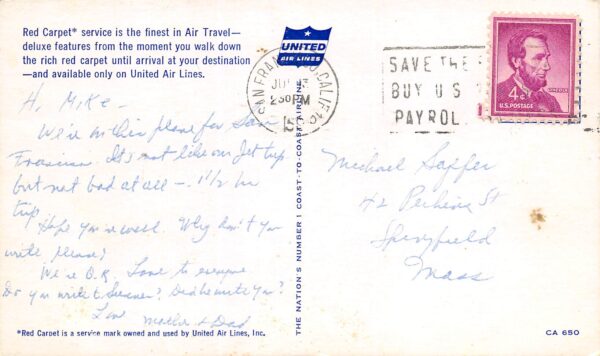 Red Carpet* service is the finest in Air Travel—
deluxe features from the moment you walk down
the rich red carpet until arrival at your destination
—and available only on United Air Lines.
UNITED
AIR LINES
SAN FRANCISCO, CALIF.
230PM
SAVE THE
BUY U S
PAYROL
4¢
U.S. POSTAGE
LINCOLN
Hi, Mike—
We're in this plane for San
Francisco. It's not like our Jet trip
but not bad at all — 1½ hr
trip
Hope you're well. Why don't you
write, please?
We're O.K. Love to everyone
Do you write to ? Does he write you?
Love
Mother + Dad
Michael
42 Perkins St
Springfield
Mass
THE NATION'S NUMBER 1 COAST-TO-COAST AIRLINE
*Red Carpet is a service mark owned and used by United Air Lines, Inc.
CA 650